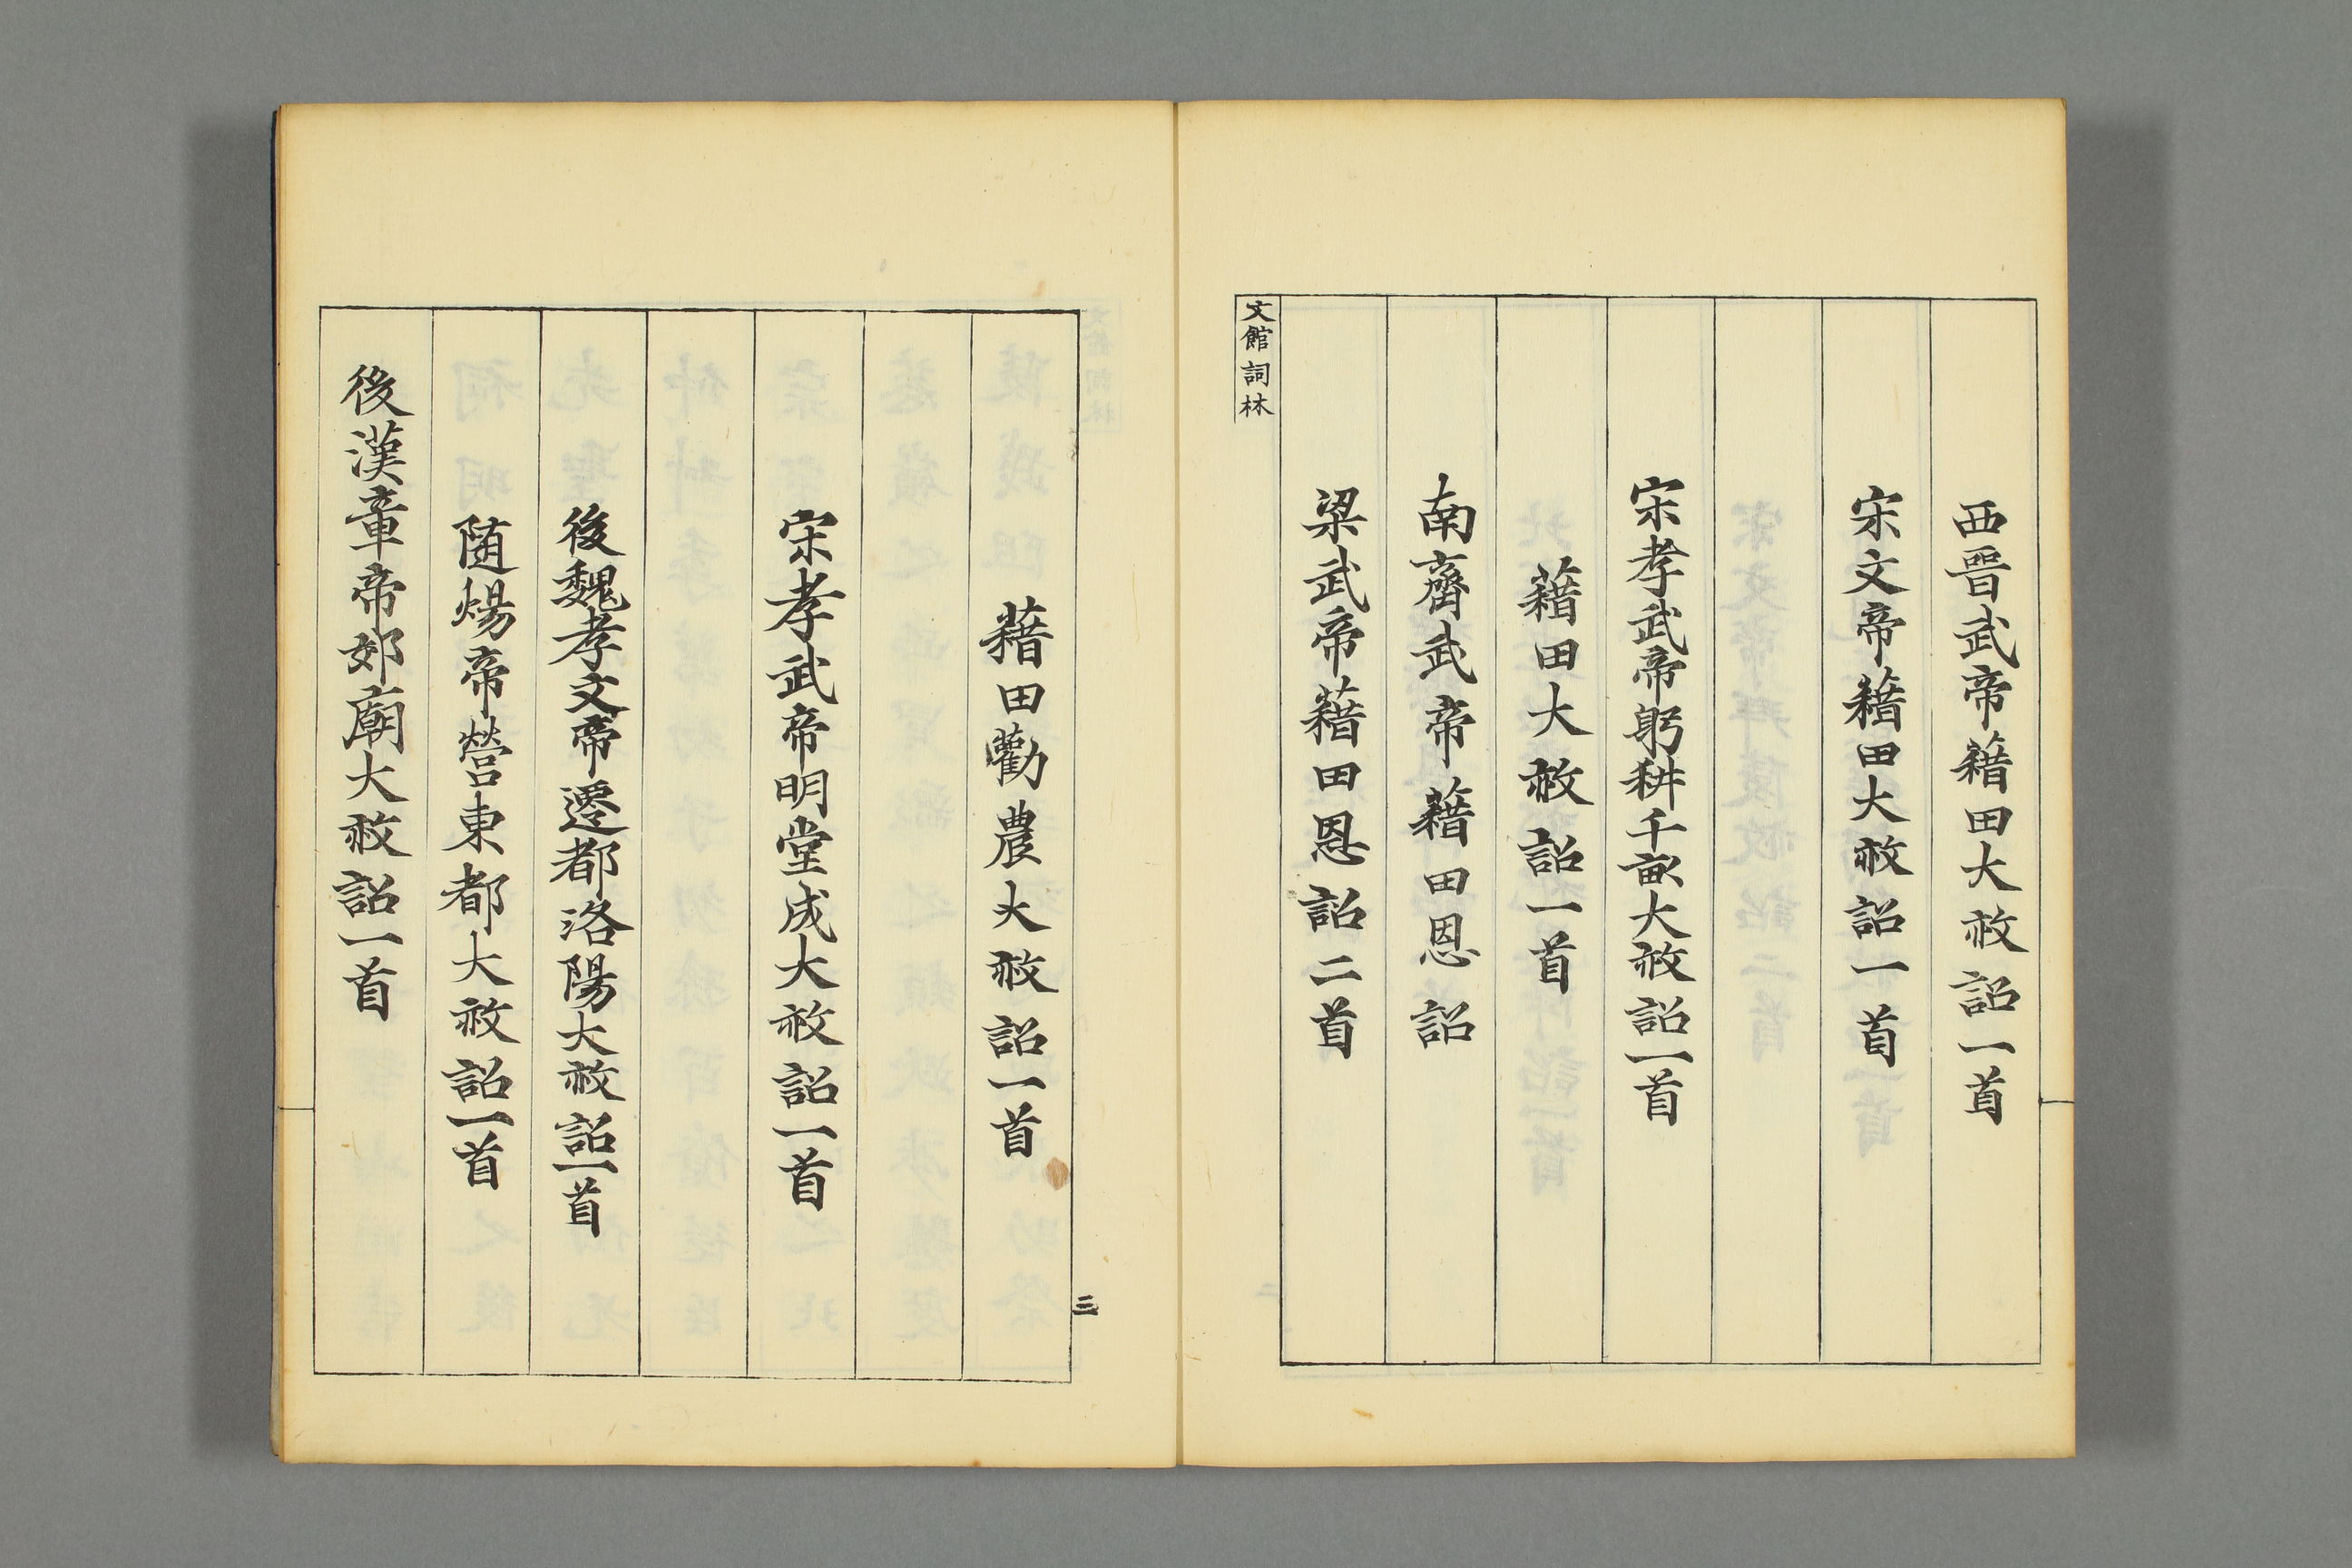 西晋武帝籍田大赦詔一首
宋文帝籍田大赦詔一首
宋孝武帝躬耕千畝大赦詔一首
藉田大赦詔一首
南齊武帝藉田恩詔
梁武帝藉田恩詔二首
文館詞林
三
藉田勸農大赦詔一首
宋孝武帝明堂成大赦詔一首
後魏孝文帝遷都洛陽大赦詔一首
随煬帝營東都大赦詔一首
後漢章帝郊廟大赦詔一首